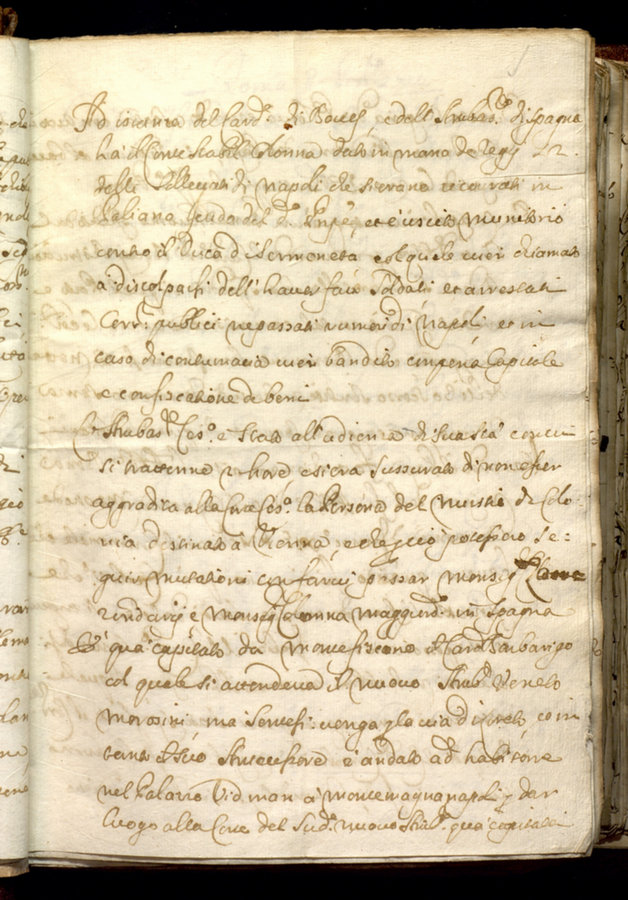 Ad istanza del Card.e di Boves, e dell'Ambas.re di Spagna
hà il Contestabil Colonna dato in mano de Regij
delli Vellettati di Napoli che s'erano ricovrati in
Paliano feudo del d.o et è uscito monitorio
contro il Duca di Sermoneta col quale vien chiamato
a discolparsi dell'haver fatto soldati et arrestati
Corr.i publici ne passati rumori di Napoli et in
caso di contumacia vien bandito in pena Capitale
e confiscatione de beni
L'Ambas.re Ces.o è stato all'udienza di Sua S.tà con cui
si trattenne 2 hore e si era sussurato di non esser
aggradita alla Corte Ces.a la Persona del Nuntio di Colo-
nia destinato à Vienna, e che perciò potessero se-
guir mutationi con farvi passar Monsig.r
e Monsig.r Colonna Maggiord.o in Spagna
È quà capitato da Montefiascone il Card. Barbarigo
col quale si attendeva il nuovo Amb.r Veneto
Morosini ma venga p la via di
tanto il suo Antecessore è andato ad habitare
nel Palazzo Vidman à Monte Magnanapoli p dar
luogo alla Corte del Sud.o nuovo Amb.r quà capitata